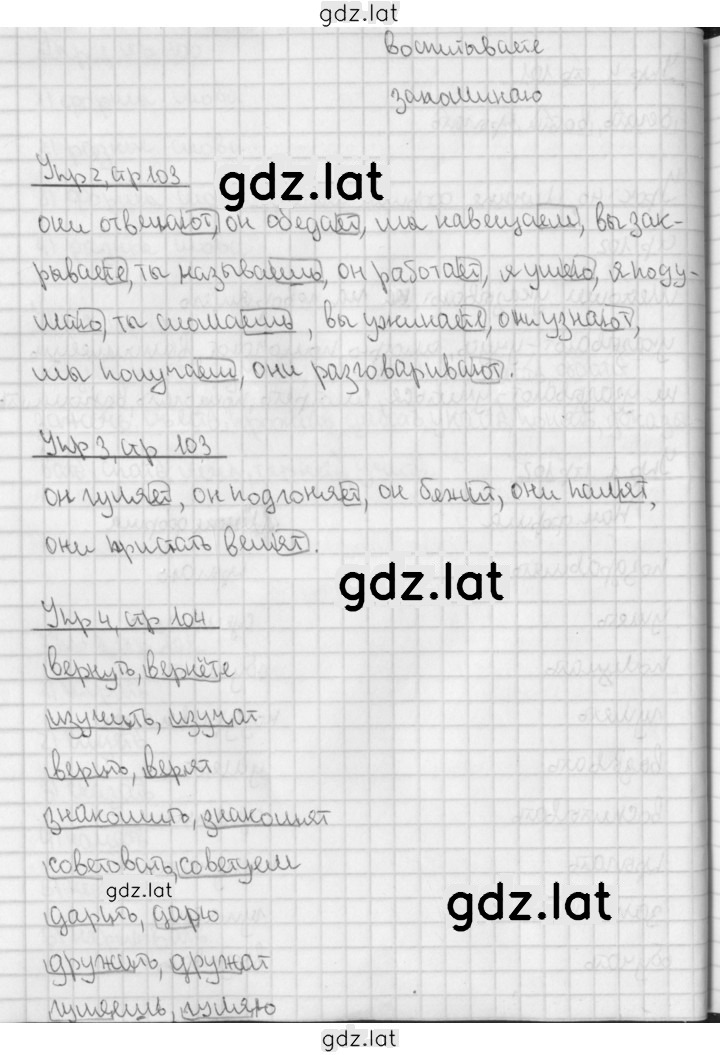 gdz.lat
воспитываете
запоминаю
Упр 2, стр 103
gdz.lat
они отвечают, он обедает, мы навещаем, вы зак-
рываете, ты называешь, он работает, я умею, я поду-
маю, ты сломаешь, вы ужинаете, они узнают,
мы получаем, они разговаривают.
Упр 3, стр 103
он гуляет, он подгоняет, он бежит, они памят,
они кристать велят.
gdz.lat
Упр 4, стр 104
вернуть, вернёте
изучить, изучат
верить, верят
знакомить, знакомят
советовать, советуем
gdz.lat
gdz.lat
дарить, дарю
дружить, дружат
гуляешь, гуляю
gdz.lat